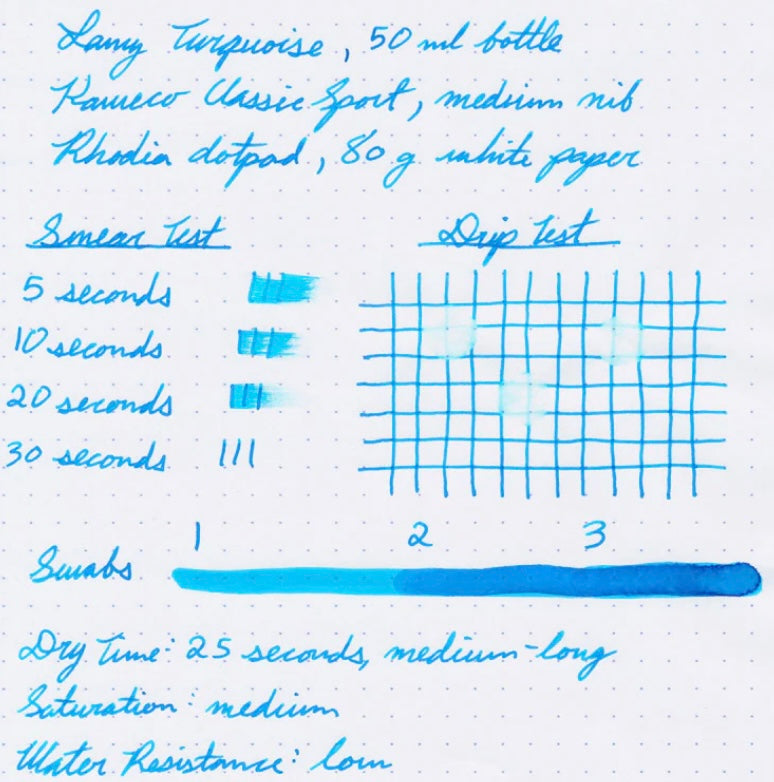 Lamy Turquoise, 50 ml bottle
Kaweco Classic Sport, medium nib
Rhodia dotpad, 80 g white paper
Smear Test
Drip Test
5 seconds
10 seconds
20 seconds
30 seconds
1 2 3
Swabs
Dry Time: 25 seconds, medium-long
Saturation: medium
Water Resistance: low